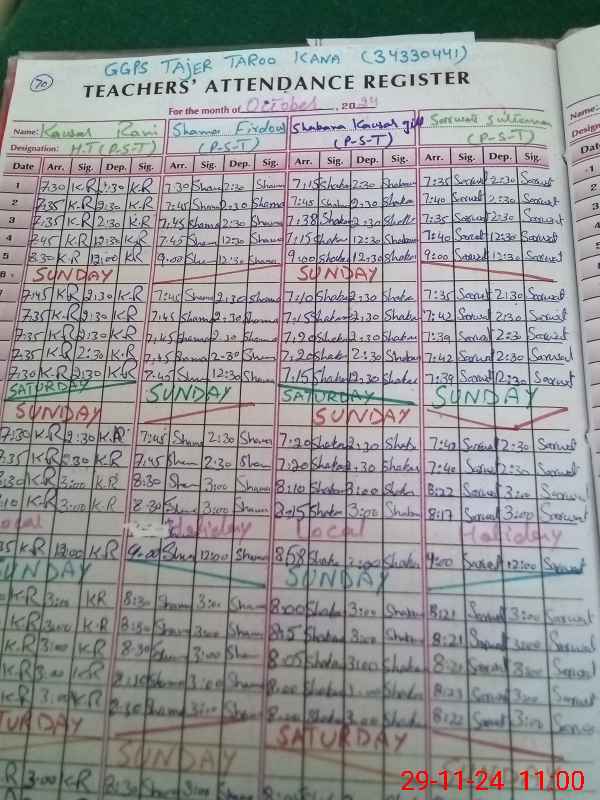 GGPS TAJER TAROO KANA (34330441)
70
TEACHERS' ATTENDANCE REGISTER
For the month of October, 2024
Name: Kausar Rani Shama Firdous Shabana Kausar gill Sarwat Sultana
Designation: H.T (P-S-T) (P-S-T) (P-S-T) (P-S-T)
Date Arr. Sig. Dep. Sig. Arr. Sig. Dep. Sig. Arr. Sig. Dep. Sig. Arr. Sig. Dep. Sig.
1 7:30 K-R 2:30 K-R 7:30 Sham 2:30 Shama 7:15 Shaba 2:30 Shabana 7:35 Sarwat 2:30 Sarwat
2 7:35 K-R 2:30 K-R 7:45 Sham 2:30 Shama 7:45 Shaba 2:30 Shaba 7:40 Sarwat 2:30 Sarwat
3 7:35 K-R 2:30 K-R 7:45 Sham 2:30 Shama 7:38 Shaba 2:30 7:35 Sarwat 2:30 Sarwat
4 7:45 K-R 12:30 K-R 7:45 Sham 12:30 Shama 7:15 Shaba 12:30 Shaba 7:40 Sarwat 12:30 Sarwat
5 8:30 K-R 12:00 KR 9:00 Sham 12:30 Shama 9:00 Shaba 12:30 Shaba 9:00 Sarwat 12:30 Sarwat
SUNDAY SUNDAY
7:45 K-R 2:30 K-R 7:45 Sham 2:30 Shama 7:10 Shaba 2:30 Shaba 7:35 Sarwat 2:30 Sarwat
7:35 K-R 2:30 K-R 7:45 Sham 2:30 Shama 7:15 Shaba 2:30 Shaba 7:42 Sarwat 2:30 Sarwat
7:35 K-R 2:30 K-R 7:45 Sham 2:30 Shama 7:20 Shaba 2:30 Shaba 7:39 Sarwat 2:30 Sarwat
7:35 K-R 2:30 K-R 7:45 Sham 2:30 Sham 7:20 Shaba 2:30 Shaba 7:42 Sarwat 2:30 Sarwat
7:30 K-R 2:30 K-R 7:45 Sham 12:30 Shama 7:15 Shaba 12:30 Shaba 7:39 Sarwat 12:30 Sarwat
SATURDAY SUNDAY SATURDAY SUNDAY
SUNDAY SUNDAY
7:30 K-R 2:30 K-R 7:45 Sham 2:30 Shama 7:20 Shaba 2:30 Shaba 7:40 Sarwat 2:30 Sarwat
K-R 2:30 K-R 7:45 Sham 2:30 Sham 7:20 Shaba 2:30 Shaba 7:40 Sarwat 2:30 Sarwat
K-R 3:00 K-R 8:30 Sham 3:00 Shama 8:10 Shaba 3:00 Shaba 8:22 Sarwat 3:00 Sarwat
K-R 3:00 K-R 8:30 Sham 3:00 Sham 8:15 Shaba 3:00 Shaba 8:17 Sarwat 3:00 Sarwat
ocal Holiday Local Holiday
K-R 12:00 K-R 9:00 Sham 12:00 Shama 8:58 Shaba Shaba 9:00 Sarwat 12:00 Sarwat
UNDAY SUNDAY
K-R 3:00 KR 8:30 Sham 3:00 Sham 8:00 Shaba 3:00 Shaba 8:21 Sarwat 3:00 Sarwat
K-R 3:00 K-R 8:30 Sham 3:00 Sham Shaba 3:00 Shaba 8:21 Sarwat 3:00 Sarwat
K-R 3:00 K-R 8:30 Sham 3:00 Sham 8:05 Shaba 3:00 Shaba Sarwat 3:00 Sarwat
K-R 3:00 K-R 8:30 Sham 3:00 Sham 8:00 Shaba 3:00 Shaba 8:23 Sarwat 3:00 Sarwat
K-R 3:00 K-R 8:30 Sham 3:00 Sham 8:00 Shaba 3:00 Shaba 8:22 Sarwat 3:00 Sarwat
TURDAY SATURDAY
SUNDAY SUNDAY
R 3:00 K-R 8:30 Sham 3:00 Sham 8:05
29-11-24 11:00